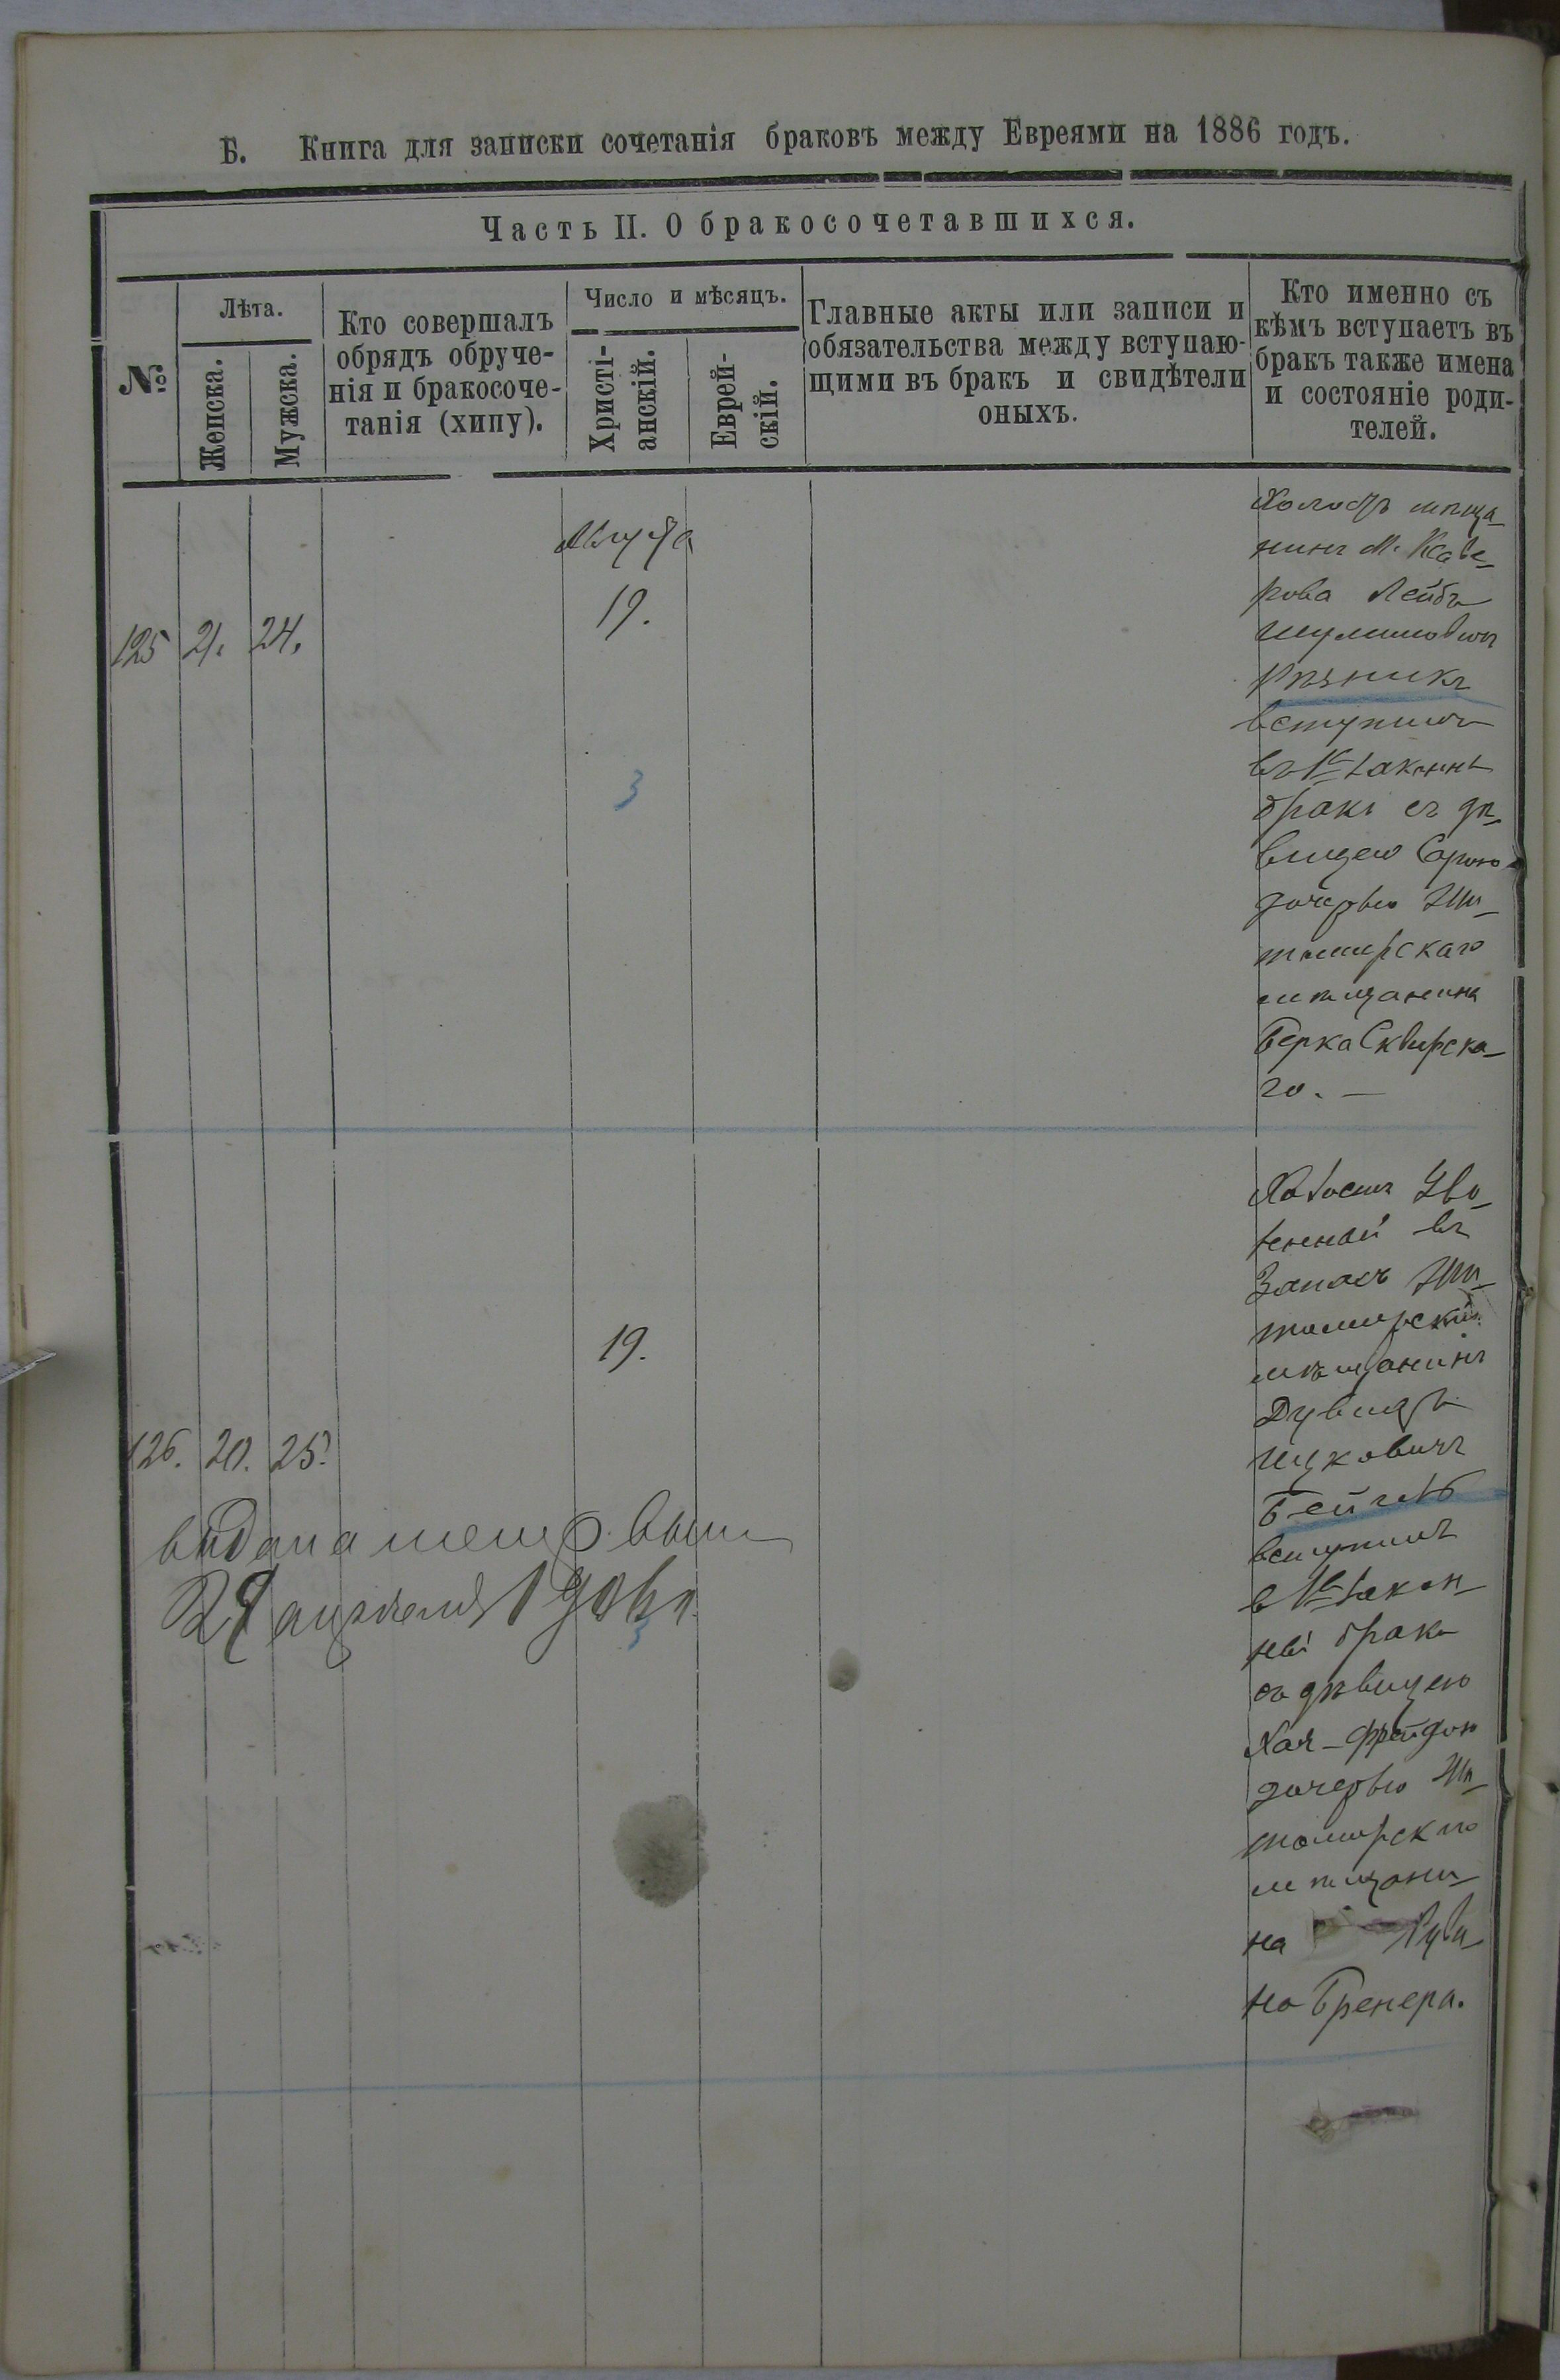 Б. Книга для записки сочетанія браковъ между Евреями на 1886 годъ.
Часть II. О бракосочетавшихся.
№
Лѣта.
Женска.
Мужска.
Кто совершалъ
обрядъ обруче-
нія и бракосоче-
танія (хипу).
Число и мѣсяцъ.
Христі-
анскій.
Еврей-
скій.
Главные акты или записи и
обязательства между вступаю-
щими въ бракъ и свидѣтели
оныхъ.
Кто именно съ
кѣмъ вступаетъ въ
бракъ также имена
и состояніе роди-
телей.
Августа
125 21. 24.
19.
3
Холостъ мѣща-
нинъ М.
Лейбъ
Шулимовичъ
Рѣзникъ
вступилъ
въ 1й законны
бракъ съ дѣ-
вицею Сарою
дочерью Жи-
томирскаго
мѣщанина
Берка Сквирска-
го. —
126. 20. 25.
19.
видана
3
Холостъ Уво-
ленный въ
Запасъ Жи-
томирскій
мѣщанинъ
Дувидъ
Ицковичъ
вступилъ
в 1й закон-
ный бракъ
съ дѣвицею
Хая-Фрейдою
дочерью Жи-
томирскаго
мѣщани-
на Руви-
на Бренера.